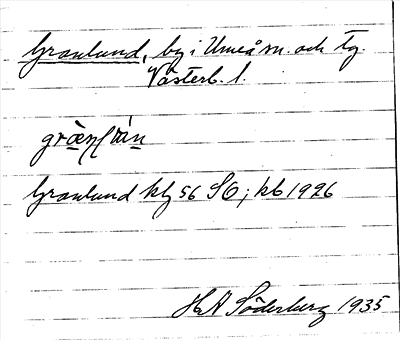 Granlund, by i Umeå sn. och tg.
Västerb. l.
Granlund kbg 56 SO; kb 1926
H A Söderberg 1935